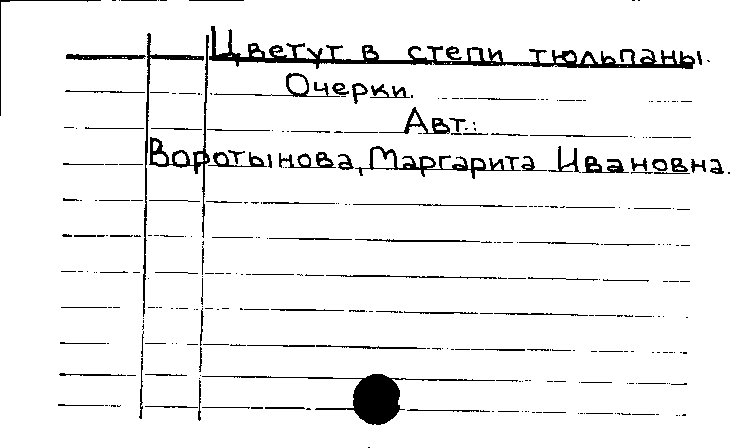 Цветут в степи тюльпаны.
Очерки.
Авт.:
Воротынова, Маргарита Ивановна.